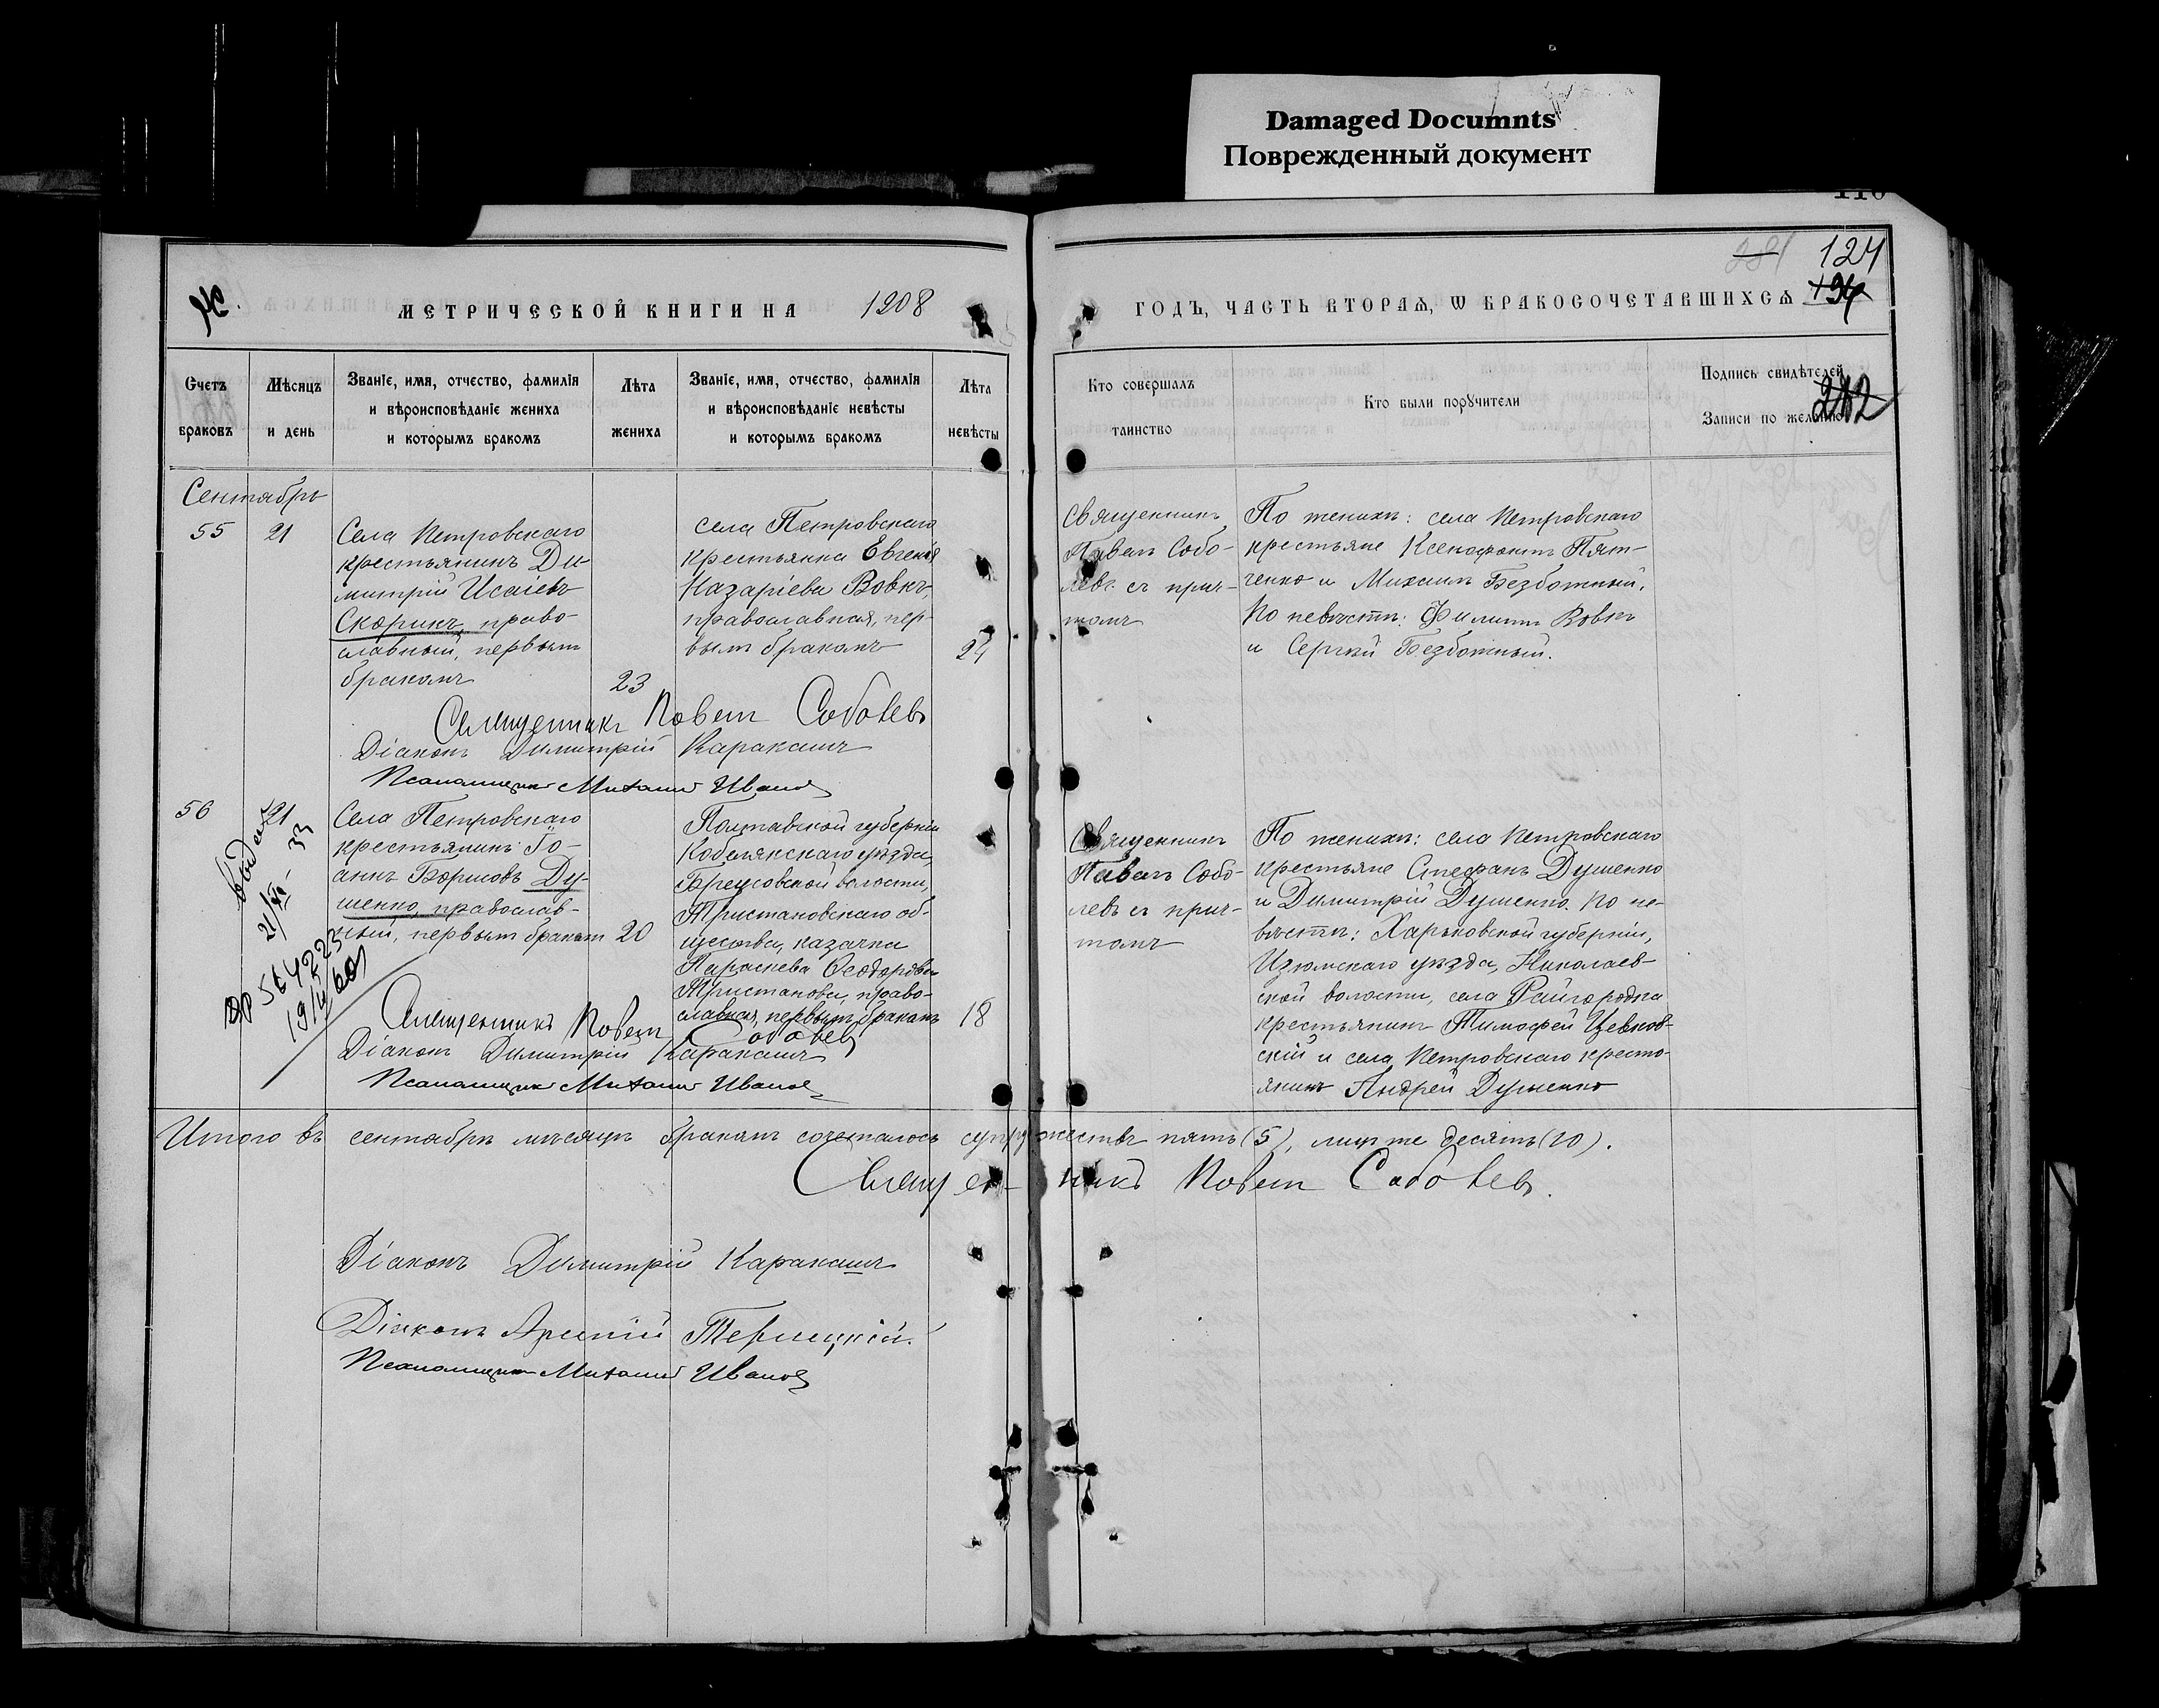 Damaged Documnts
Поврежденный документ
124
МЕТРИЧЕСКОЙ КНИГИ НА 1908
ГОДЪ, ЧАСТЬ ВТОРАѦ, Ѡ БРАКОСОЧЕТАВШИХСѦ
Счетъ
браковъ
Мѣсяцъ
и день
Званіе, имя, отчество, фамилія
и вѣроисповѣданіе жениха
и которымъ бракомъ
Лѣта
жениха
Званіе, имя, отчество, фамилія
и вѣроисповѣданіе невѣсты
и которымъ бракомъ
Лѣта
невѣсты
Кто совершалъ
таинство
Кто были порꙋчители
Подпись свидѣтелей
Записи по желанію
282
Сентябрь
55
21
Села Петровскаго
крестьянинъ Ди-
митрій Исаіевъ
Скорикъ, право-
славный, первымъ
бракомъ
23
села Петровскаго
крестьянка Евгенія
Назаріева Вовкъ,
православная, пер-
вымъ бракомъ
24
Священникъ
Павелъ Собо-
левъ съ прич-
томъ
По женихѣ: села Петровскаго
крестьяне Ксенофонтъ Пят-
ченко и Михаилъ Безбожный.
По невѣстѣ: Филиппъ Вовкъ
и Сергѣй Безбожный.
Священникъ Павелъ Соболевъ
Діаконъ Димитрій Каракашъ
Псаломщикъ Михаилъ Ивановъ
56
21
Села Петровскаго
крестьянинъ Іо-
аннъ Борисовъ Ду-
шенко, православ-
ный, первымъ бракомъ
20
Полтавской губерніи
Кобелякскаго уѣзда,
волости,
Тристановскаго об-
щества, казачка
Параскева Ѳеодорова
Тристанова, право-
славная, первымъ бракомъ
18
Священникъ
Павелъ Собо-
левъ съ прич-
томъ
По женихѣ: села Петровскаго
крестьяне Стефанъ Душенко
и Димитрій Душенко. По не-
вѣстѣ: Харьковской губерніи,
Изюмскаго уѣзда, Николаев-
ской волости, села Райгородка
крестьянинъ Тимофей Цевков-
скій и села Петровскаго кресть-
янинъ Андрей Душенко
Священникъ Павелъ Соболевъ
Діаконъ Димитрій Каракашъ
Псаломщикъ Михаилъ Ивановъ
Итого въ сентябрѣ мѣсяцѣ бракомъ сочеталось супружествъ пять (5), лицъ же десять (10).
Священникъ Павелъ Соболевъ.
Діаконъ Димитрій Каракашъ
Діаконъ
Псаломщикъ Михаилъ Ивановъ